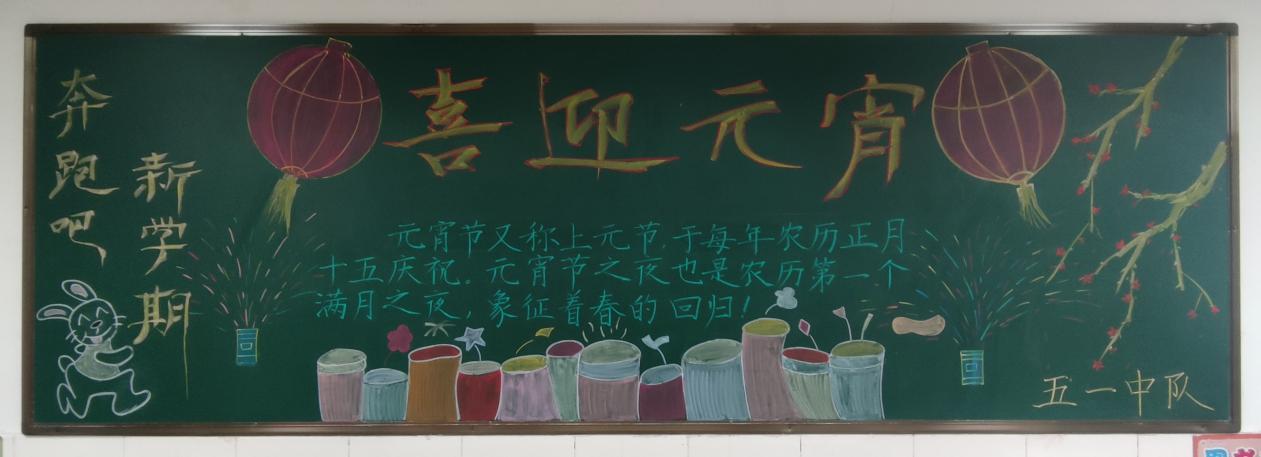 奔跑吧
新学期
喜迎元宵
元宵节又称上元节,于每年农历正月
十五庆祝。元宵节之夜也是农历第一个
满月之夜，象征着春的回归!
五一中队